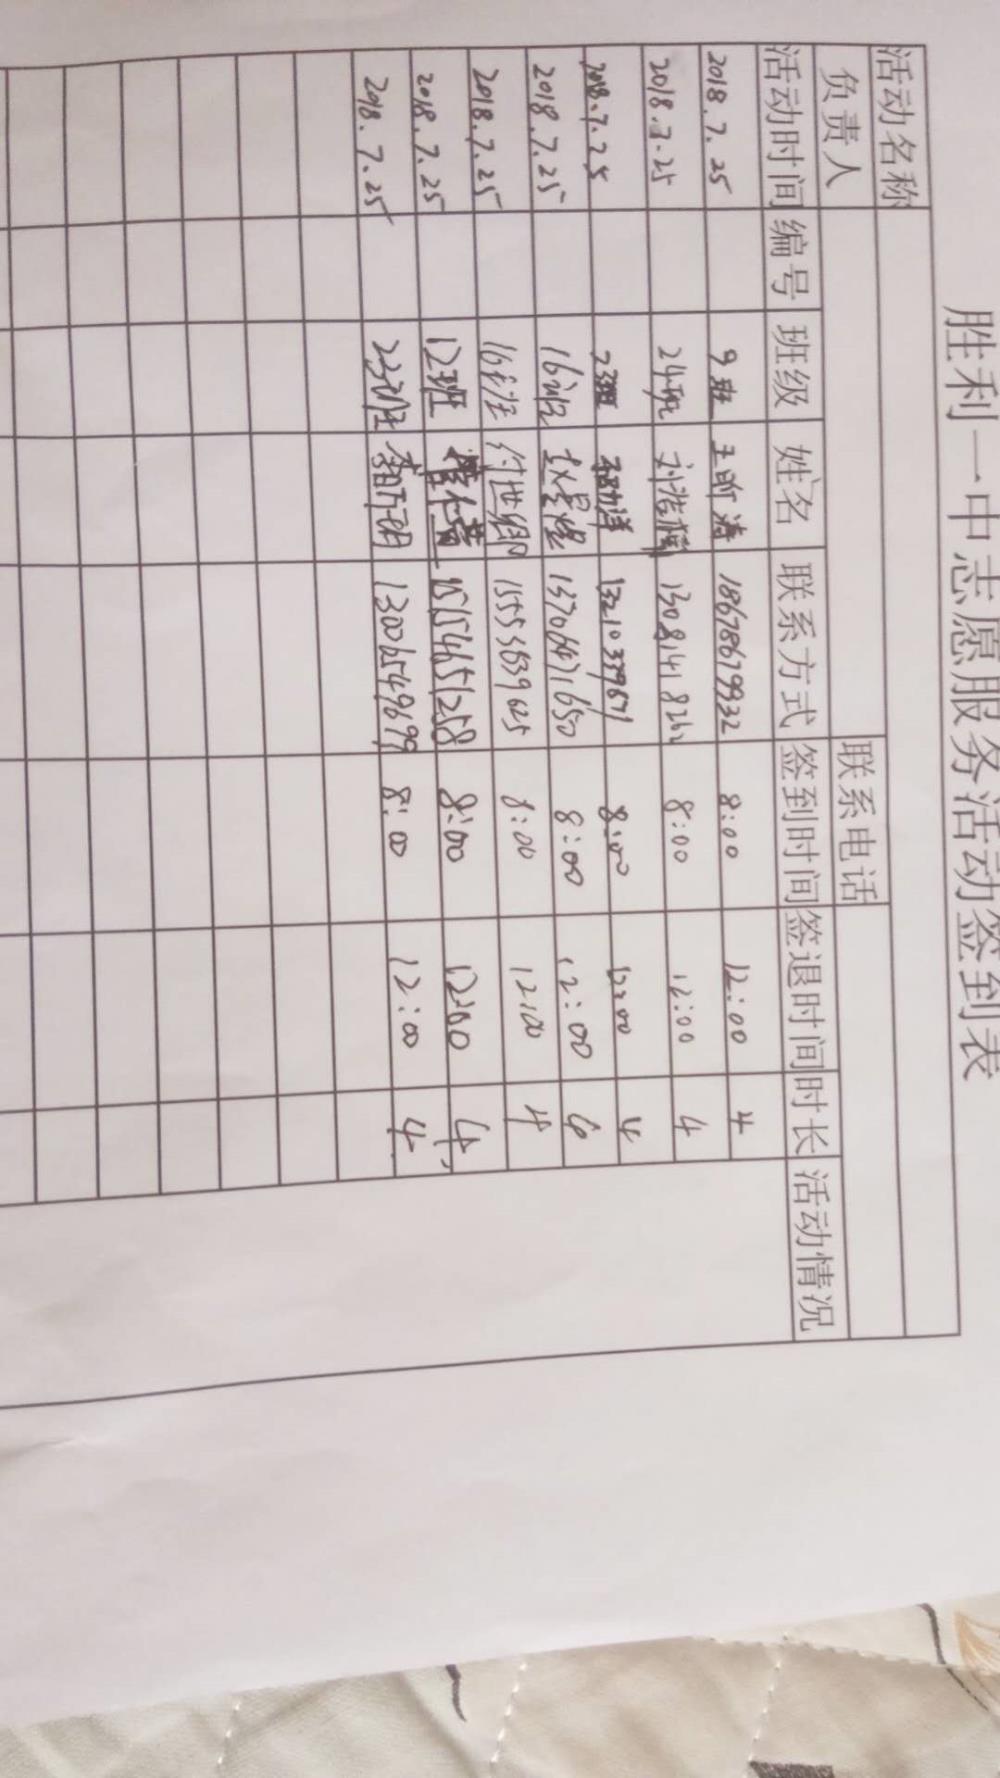 胜利一中志愿服务活动签到表
活动名称
负责人 联系电话
活动时间 编号 班级 姓名 联系方式 签到时间 签退时间 时长 活动情况
2018.7.25 9班 王昕涛 18678679932 8:00 12:00 4
2018.7.25 24班 刘浩 8:00 12:00 4
2018.7.25 23班 13210339671 8:00 12:00 4
2018.7.25 16班 13706471650 8:00 12:00
2018.7.25 16班 付世卿 15553639625 8:00 12:00 4
2018.7.25 12班 15154651258 8:00 12:00 4
2018.7.25 23班 13006549699 8:00 12:00 4